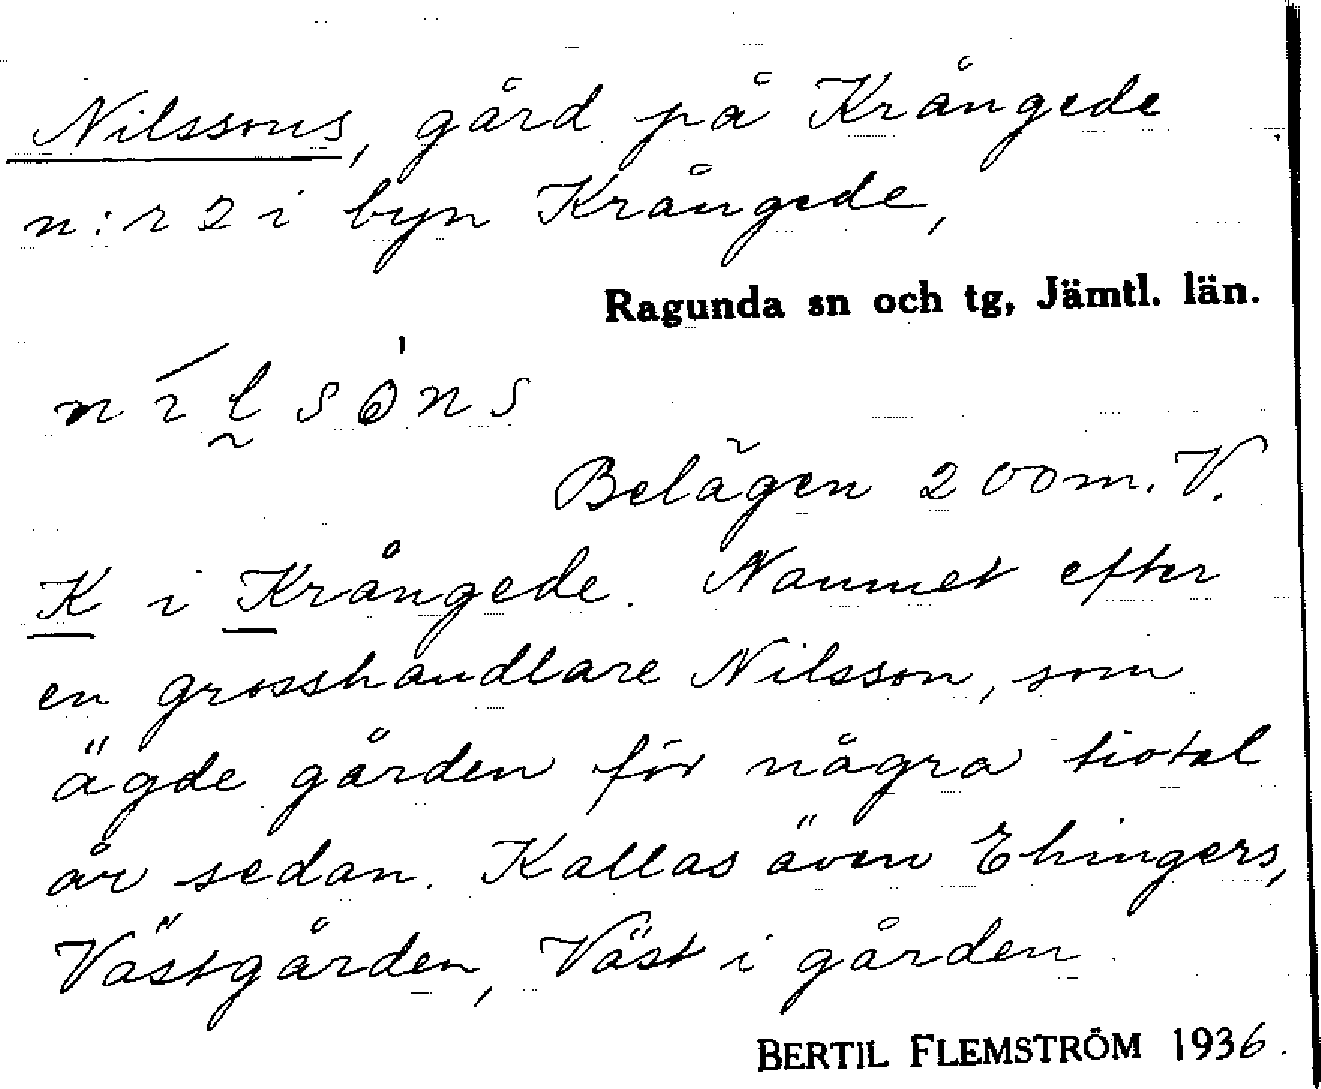 Nilssons, gård på Krångede
n:r 2 i byn Krångede,
Ragunda sn och tg, Jämtl. län.
nílsòns
Belägen 200 m. V.
K i Krångede. Namnet efter
en grosshandlare Nilsson, som
ägde gården för några tiotal
år sedan. Kallas även Ehingers,
Västgården, Väst i gården
BERTIL FLEMSTRÖM 1936.